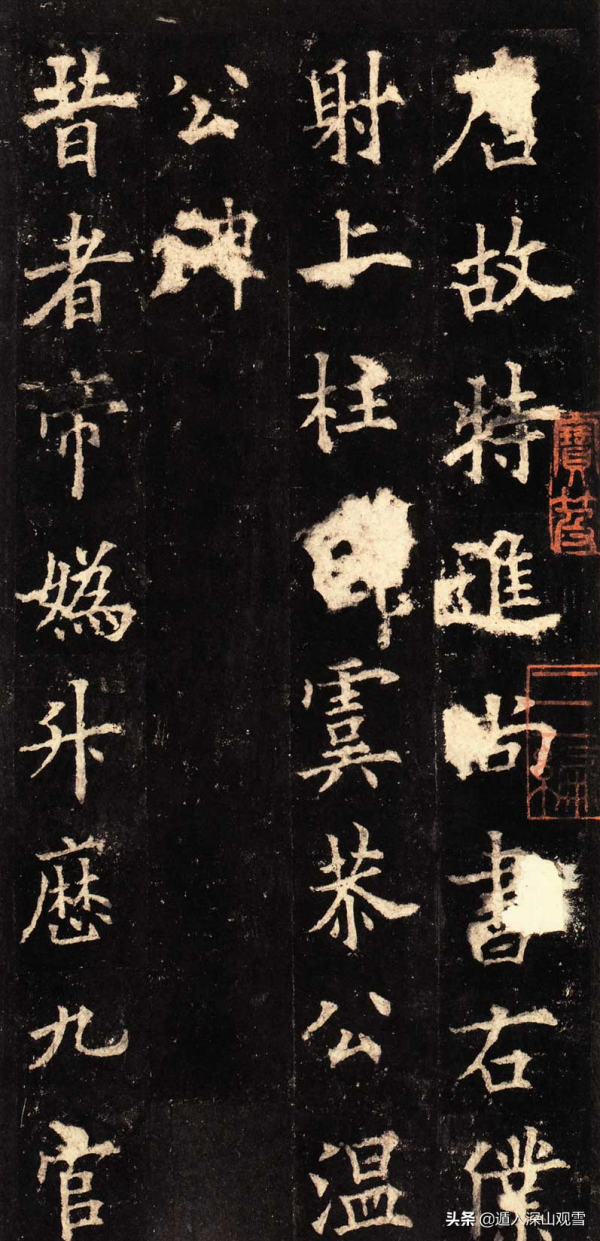 唐故特進尚書右僕
射上柱虞恭公温
公碑
昔者帝媯升歷九官
头条 @遁入深山观雪